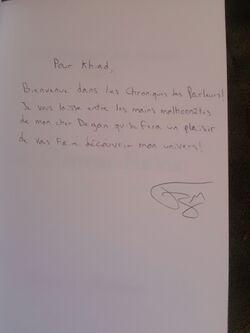 Pour Khiad,
Bienvenue dans les Chroniques des Parleurs!
Je vous laisse entre les mains malhonnêtes
de mon cher Deryan qui se fera un plaisir
de vous faire découvrir mon univers!